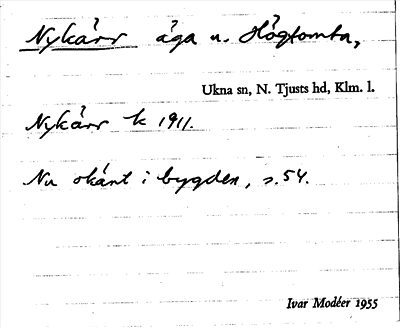 Nykärr äga u. Högtomta,
Ukna sn, N. Tjusts hd, Klm. l.
Nykärr k 1911.
Nu okänt i bygden, s. 54.
Ivar Modéer 1955